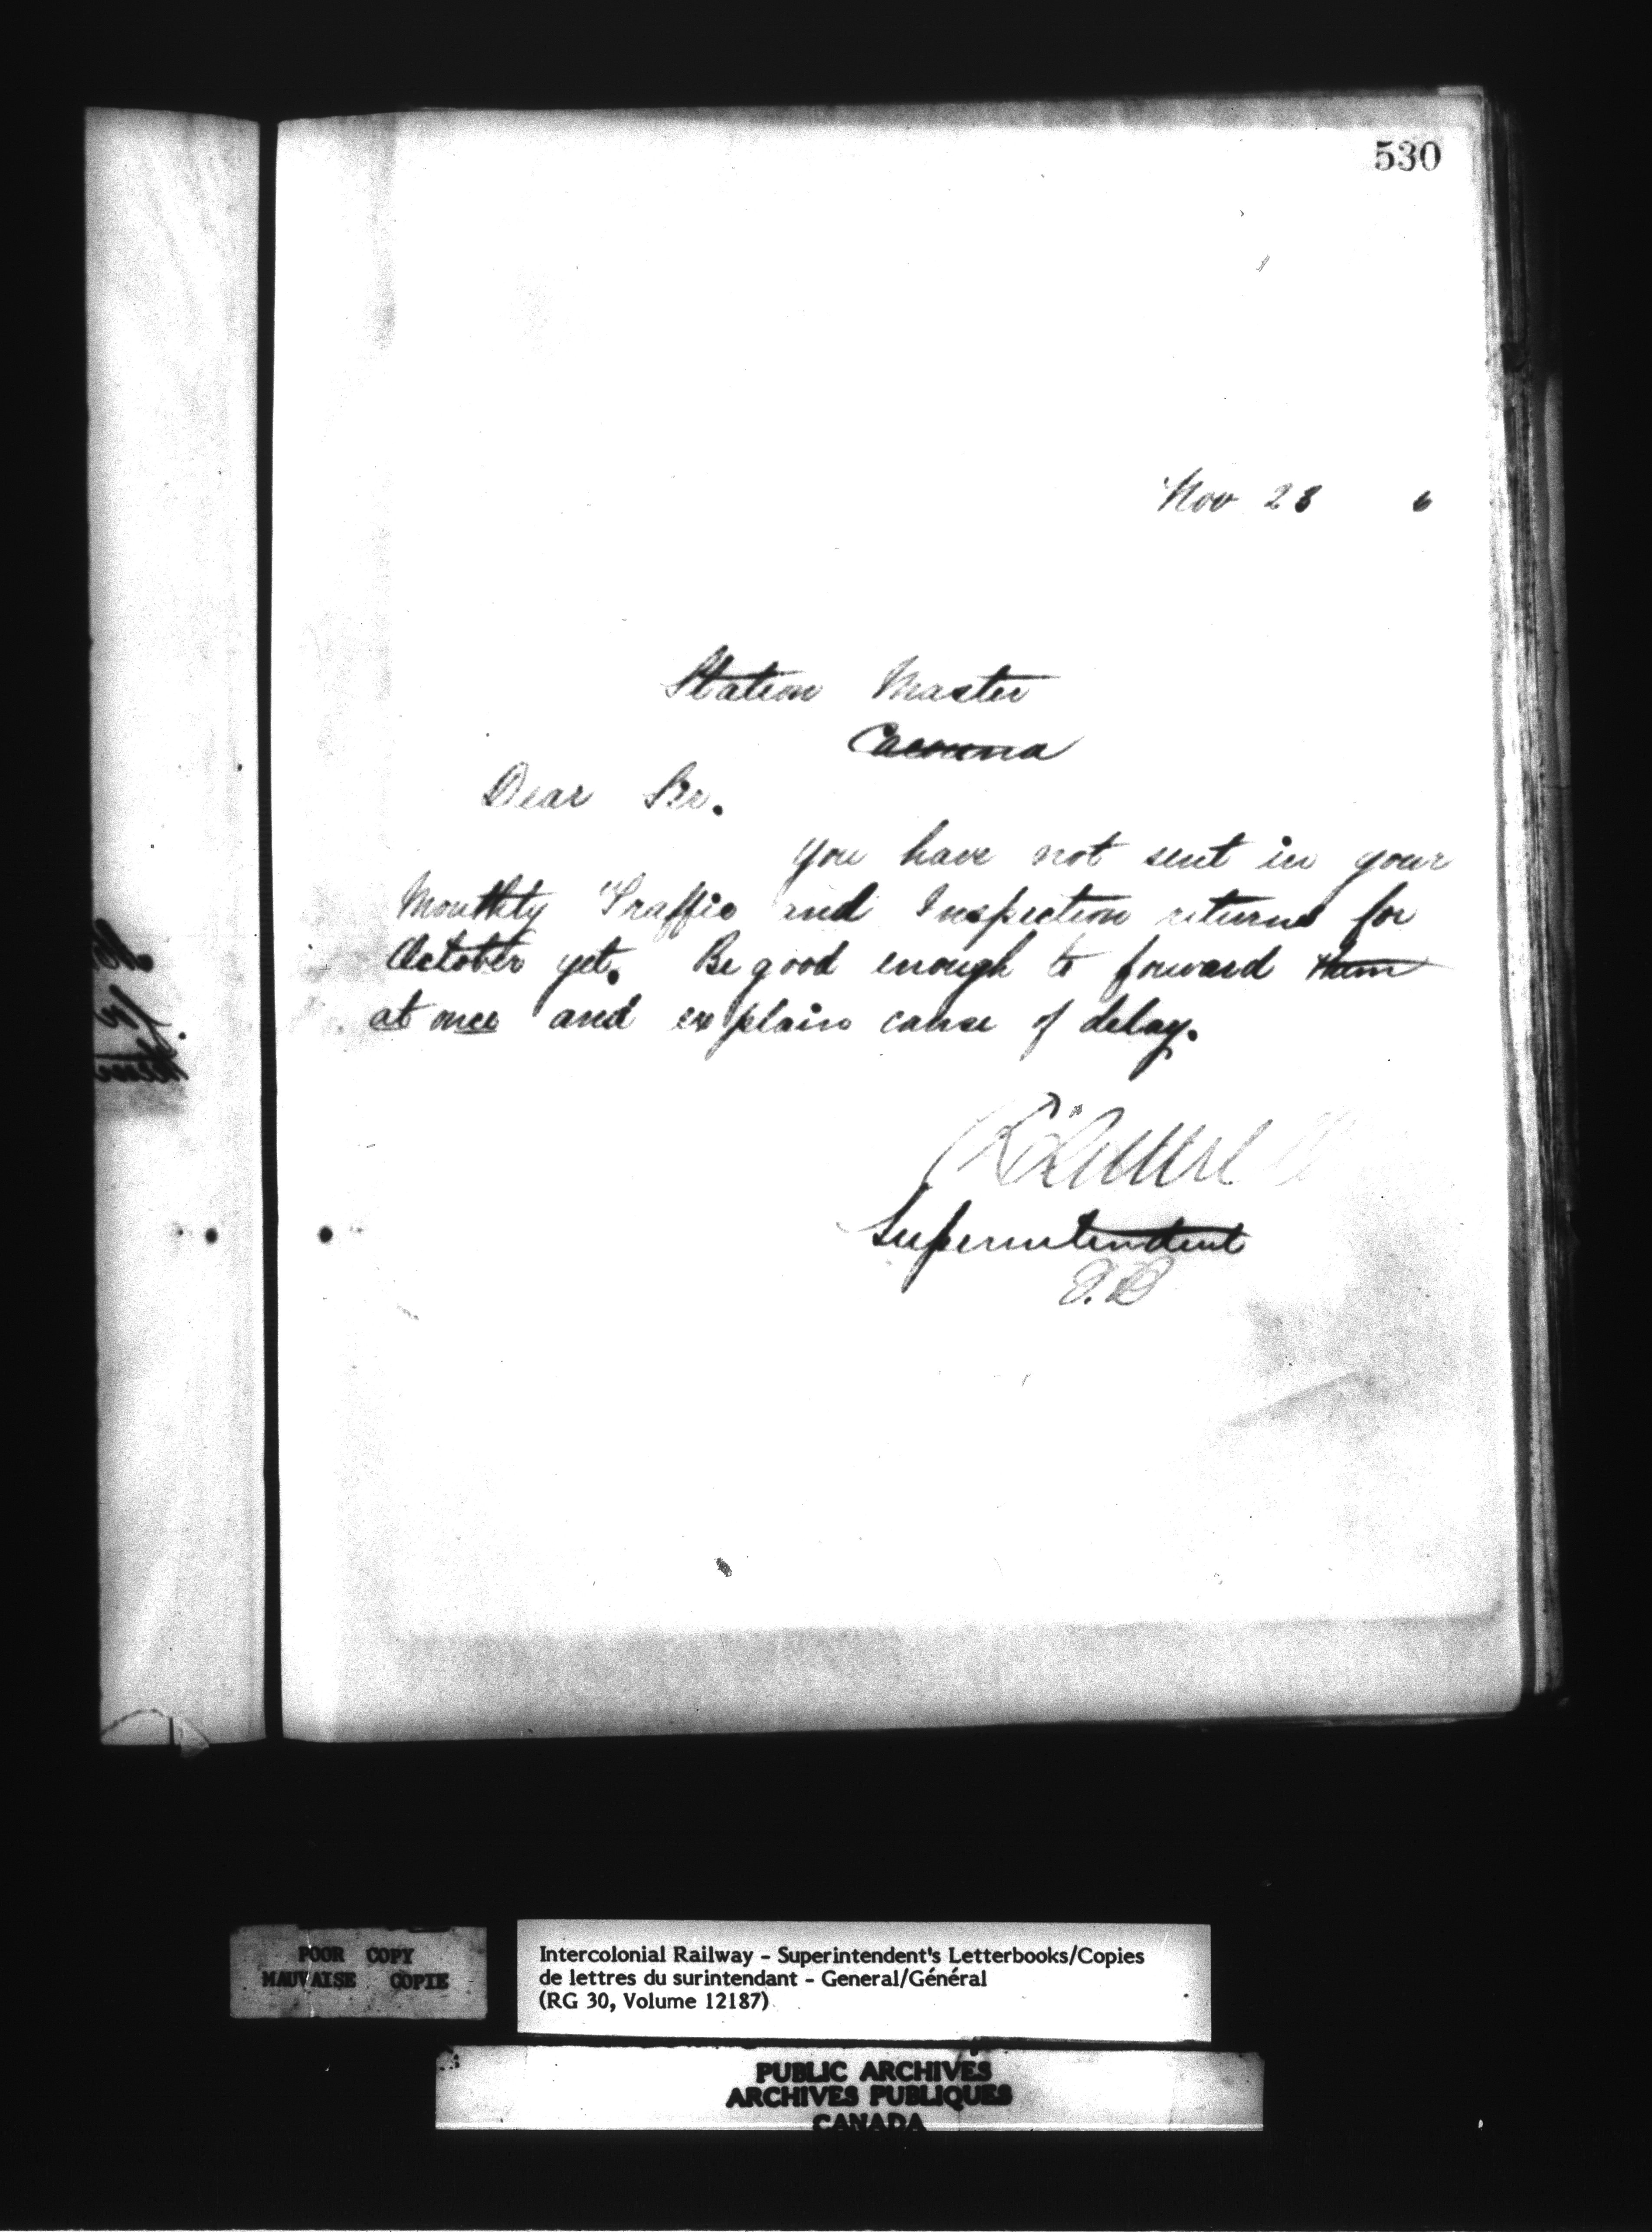 530
Nov 28 6
Station Master
Cacouna
Dear Sir.
You have not sent in your
Monthly Traffic and Inspection returns for
October yet. Be good enough to forward them
at once and explain cause of delay.
Superintendent
POOR COPY
MAUVAISE COPIE
Intercolonial Railway - Superintendent's Letterbooks/Copies
de lettres du surintendant - General/Général
(RG 30, Volume 12187)
PUBLIC ARCHIVES
ARCHIVES PUBLIQUES
CANADA